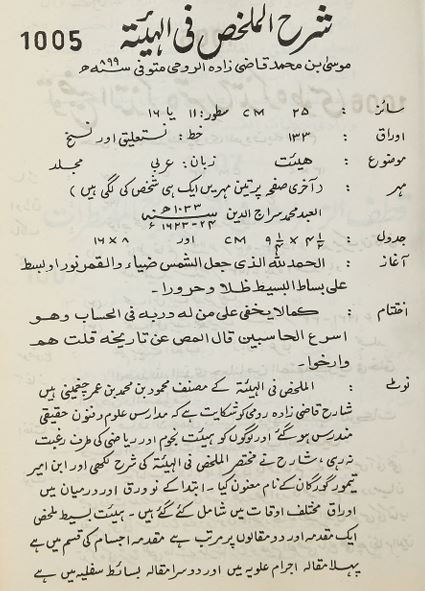 1005 شرح الملخص فی الهيئة
موسیٰ ابن محمد قاضی زاده الرومی متوفی سنه ۸۹۹ھ
سائز : ۲۵ CM سطور: ۱۱ یا ۱۶
اوراق : ۱۳۳ خط: نستعلیق اور نسخ
موضوع : هیئت زبان: عربی مجلد
مہر : (آخری صفحہ پر تین مہریں ایک ہی شخص کی لگی ہیں)
العبد محمد سراج الدین سنه ۱۰۳۳ھ ۲۴-۱۶۲۳ء
جدول : ۴ ½ × ۹ ¼ CM اور ۸ × ۱۶
آغاز : الحمدلله الذی جعل الشمس ضیاء والقمر نورا وبسط
علی بساط البسیط ظلا وحرورا۔
اختتام : کمالا یخفی علی من له دربه فی الحساب وهو
اسرع الحاسبین قال المص عن تاریخه قلت هم
وارخوا۔
نوٹ : الملخص فی الہیئۃ کے مصنف محمود بن محمد بن عمر چغمینی ہیں
شارح قاضی زادہ رومی کو شکایت ہے کہ مدارس علوم و فنون حقیقی
مندرس ہو گئے اور لوگوں کو ہیئت نجوم اور ریاضی کی طرف رغبت
نہ رہی، شارح نے مختصر الملخص فی الہیئۃ کی شرح لکھی اور ابن امیر
تیمور گورگان کے نام معنون کیا۔ ابتدا کے نو ورق اور درمیان میں
اوراق مختلف اوقات میں شامل کئے گئے ہیں۔ ہیئت بسیط ملخص
ایک مقدمہ اور دو مقالوں پر مرتب ہے مقدمہ اجسام کی قسم میں ہے
پہلا مقالہ اجرام علویہ میں اور دوسرا مقالہ بسائط سفلیہ میں ہے